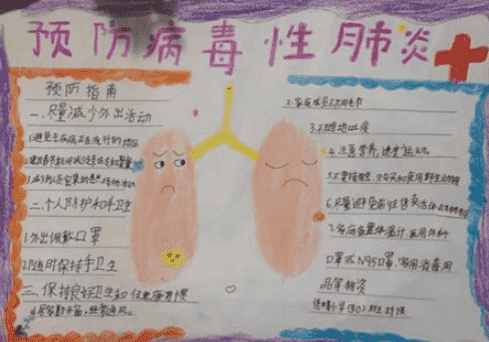 预防病毒性肺炎
预防指南
一.尽量减少外出活动
1.避免去疾病正在流行的地区
二.个人防护和手卫生
1.外出佩戴口罩
2.随时保持手卫生
三.保持良好卫生和健康习惯
1.居室勤开窗,经常通风。
2.家庭成员不共用毛巾
3.不随地吐痰
4.注意营养,适度运动
5.不要接触、购买和食用野生动物
6.尽量避免前往售卖活体
7.家庭备置体温计,医用外科
口罩或N95口罩,家用消毒用
品等物资